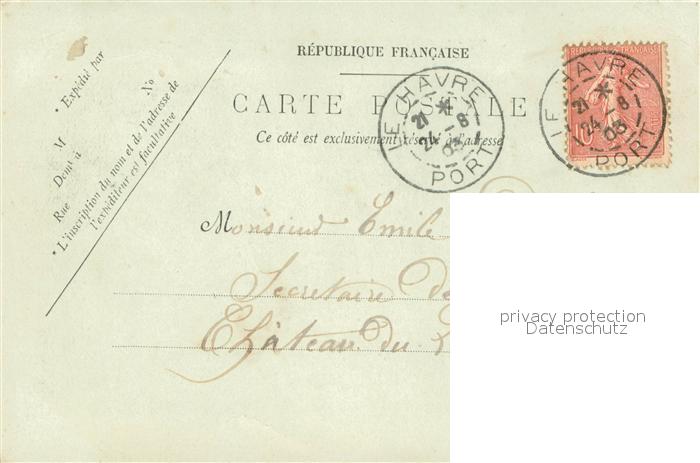 RÉPUBLIQUE FRANÇAISE
CARTE POSTALE
Ce côté est exclusivement réservé à l'adresse
* Expédié par
M
Nº
Demt à
Rue
* L'inscription du nom et de l'adresse de
l'expéditeur est facultative
LE HAVRE
21 *
24 - 8
03
PORT
RÉPUBLIQUE FRANÇAISE
LE HAVRE
21 *
24 - 8
03
PORT
Monsieur Emile
Secretaire de
Château du
privacy protection
Datenschutz